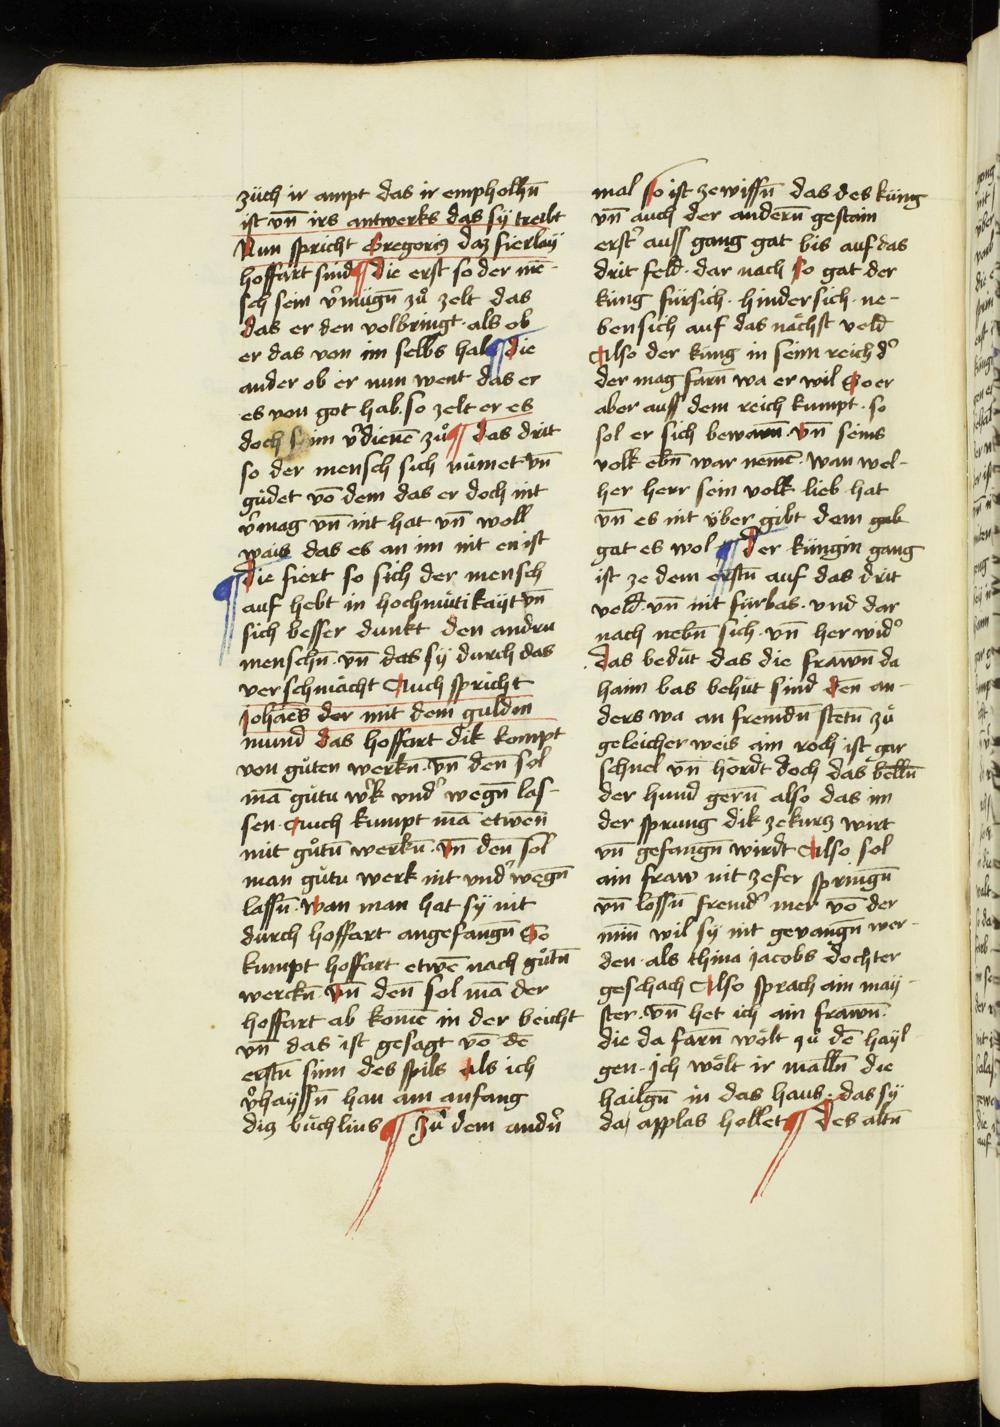 züch ir ampt das ir empholhn̄
ist vn̄ irs antwerks das sÿ treibt
Nun spricht Gregoriꝰ daz fierlaÿ
hoffart sind ¶ Die erst so der mē-
sch sein v̓mügn̄ zů zelt das
das er den volbringt · als ob
er das von im selbs hab ¶ Die
ander ob er nun went das er
es von got hab · so zelt er es
doch sinn v̓dienē zů ¶ Das dritt
so der mensch sich růmet vn̄
gůdet vō dem das er doch nit
v̓mag vn̄ nit hat vn̄ woll
wais das es an im nit en ist
¶ Die fiert so sich der mensch
auf hebt in hochmůtikaÿt vn̄
sich besser dunkt den andrn
menschn̄ · vn̄ das sÿ durch das
verschmächt Auch spricht
Johaēs der mit dem guldin
mund das hoffart dik kompt
von gůten werkn̄ · vn̄ den sol
mā gůtu w̓k vnd̓ wegn̄ las-
sen · Auch kumpt mā etwen
mit gůtn̄ werkn̄ · Vn̄ den sol
man gůtu werk nit vnd̓ wegn̄
lassn̄ · Wan man hat sÿ nit
durch hoffart angefangn̄ So
kumpt hoffart etwē nach gůtn̄
werckn̄ · Vn̄ den sol mā der
hoffart ab komē in der beicht
vn̄ das ist gesagt vō dē
erstn̄ sinn des spils Als ich
v̓haÿssn̄ han am anfang
diz bůchlins ¶ Zů dem andn̓
mal So ist ze wissn̄ das des küng
vn̄ auch der andern̄ gestain
erst̓ auss gang gat bis auf das
drit feld · dar nach so gat der
küng fürsich · hindersich · ne-
bensich auf das nächst veld
Also der küng in seim reich d̓
der mag farn̄ wa er wil So er
aber auss dem reich kumpt · so
sol er sich bewarn̄ · vn̄ seins
volk ebn̄ war nemē · Wan wel-
her herr sein volk lieb hat
vn̄ es nit über gibt dem gab
gat es wol ¶ Der küngin gang
ist ze dem erstn̄ auf das drit
veld · vn̄ nit fürbas · vnd dar
nach nebn̄ sich · vn̄ her wid̓
Das bedüt das die frawn̄ da
haim bas behüt sind den an-
ders wa an fremdn̄ stetn̄ zů
geleicher weis ain roch ist gar
schnel vn̄ hördt doch das belln̄
der hund gern̄ also das im
der sprung dik ze kurz wirt
vn̄ gefangn̄ wirdt Also sol
ain fraw nit ze fer springn̄
vn̄ lossn̄ fremd̓ mer vō der
min̄ wil sÿ nit gevangn̄ wer-
den · als thina jacobs dochter
geschach Also sprach ain maÿ-
ster · vn̄ het ich ain frawn̄ ·
die da farn̄ wölt zů dē haÿl-
gen · Ich wölt ir malln̄ die
hailgn̄ in das haus · das sÿ
da applas hollet ¶ Des altn̄